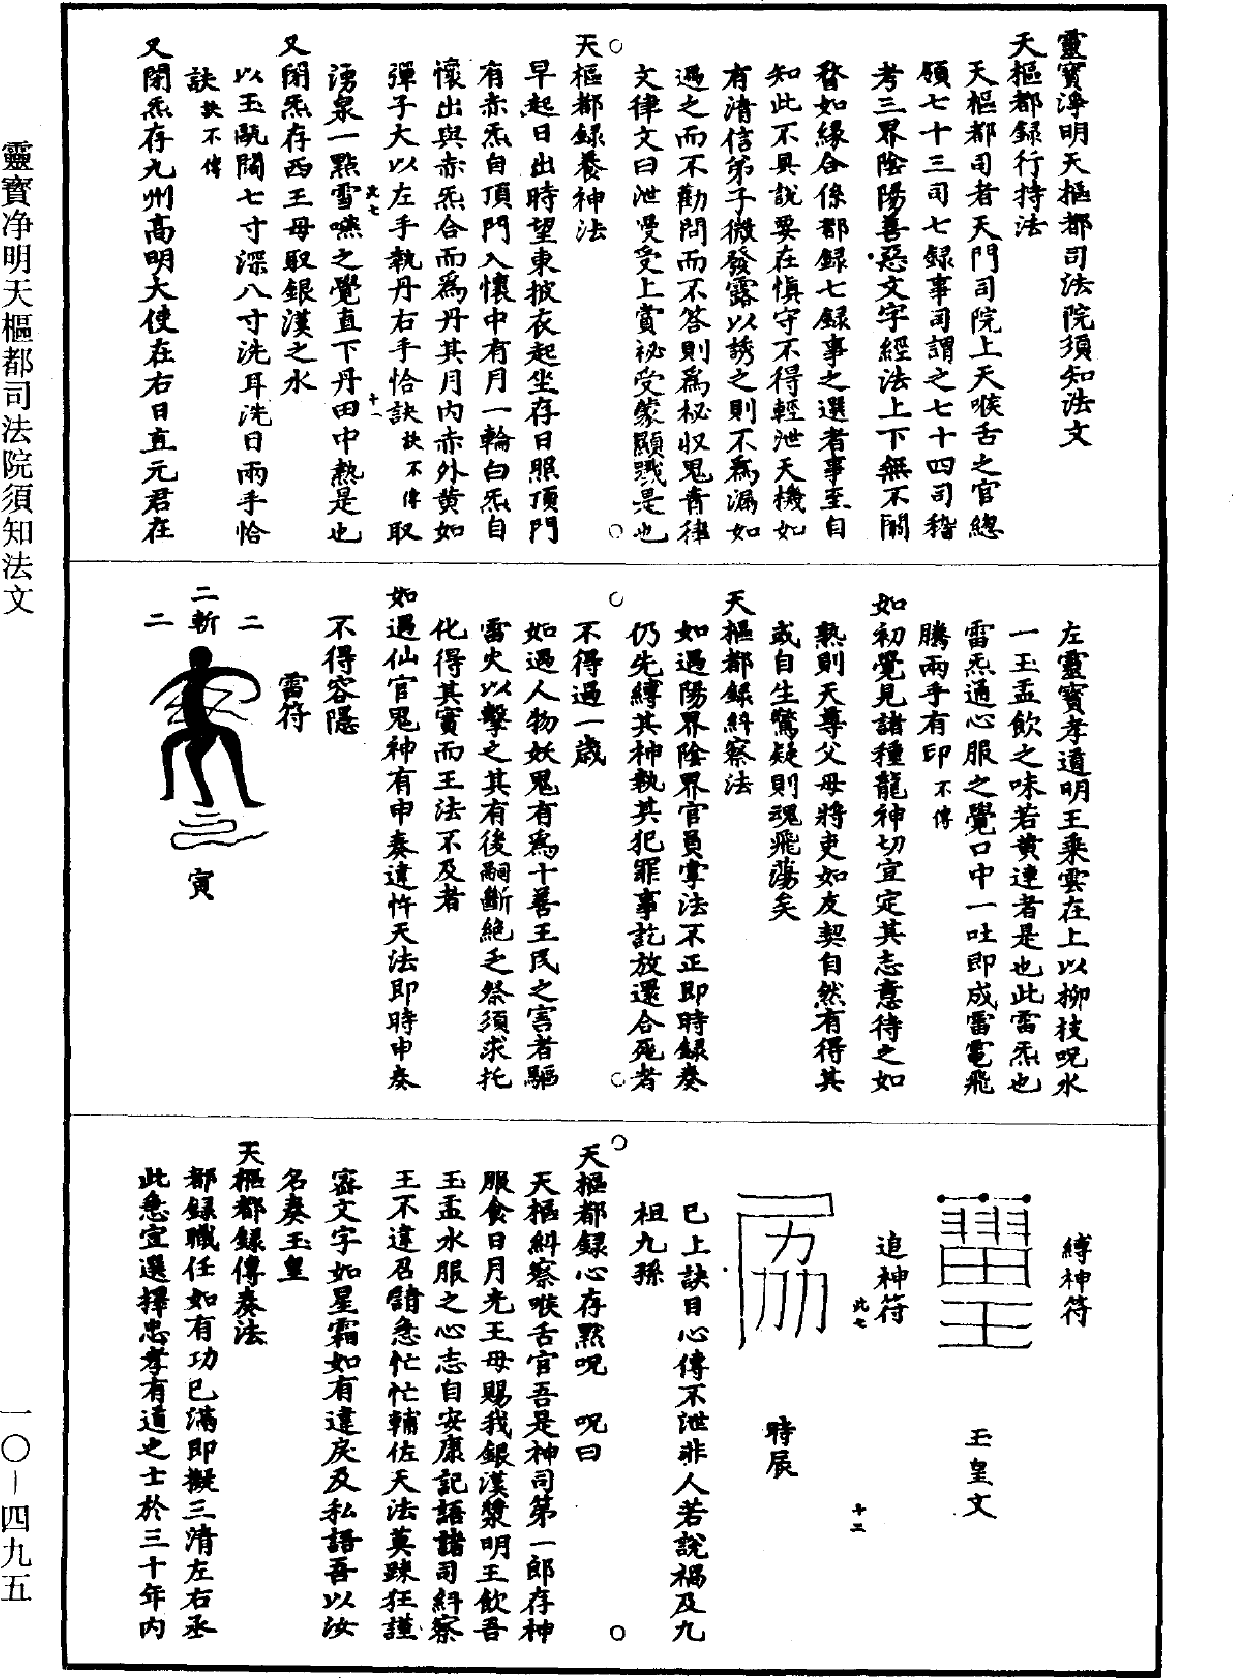 靈寶淨明天樞都司法院須知法文
天樞都録行持法
天樞都司者天門司院上天喉舌之官總
領七十三司七録事司謂之七十四司稽
考三界陰陽善惡文字經法上下無不關
䝉如緣合係都録七録事之選者事至自
知此不具說要在愼守不得輕泄天機如
有清信弟子微發露以誘之則不爲漏如
遇之而不勸問而不答則爲秘収鬼青律
文律文曰泄受受上賞祕受䝉顯戮是也
天樞都録養神法
早起日出時望東披衣起坐存日照頂門
有赤炁自頂門入懷中有月一輪白炁自
懷出與赤炁合而爲丹其月内赤外黄如
彈子大以左手執丹右手恰訣訣不傳取
湧泉一點雪嚥之覺直下丹田中熱是也
又閉炁存西王母取銀漢之水
以玉甌闊七寸深八寸洗耳洗日兩手恰
訣訣不傳
又閉炁存九州高明大使在右日直元君在
左靈寶孝道明王乘雲在上以柳枝呪水
一玉盃飲之味若黄連者是也此雷炁也
雷炁通心服之覺口中一吐即成雷電飛
騰兩手有印不傳
如初覺見諸種龍神切宜定其志意待之如
熟則天尊父母將吏如友契自然有得其
或自生驚疑則魂飛蕩矣
天樞都録糾察法
如遇陽界陰界官員掌法不正即時録奏
仍先縛其神執其犯罪事訖放還合死者
不得過一歲
如遇人物妖鬼有爲十善王民之害者驅
雷火以擊之其有後嗣斷絶乏祭須求托
化得其實而王法不及者
如遇仙官鬼神有申奏違忤天法即時申奏
不得容隱
雷符
二
二斬
二
寅
縛神符
玉皇文
追神符
時辰
已上訣目心傳不泄非人若說禍及九
祖九孫
天樞都録心存黙呪　呪曰
天樞糾察喉舌官吾是神司第一郎存神
服食日月光王母賜我銀漢漿明王飲吾
玉盃水服之心志自安康記語諸司糾察
王不違召請急忙忙輔佐天法莫踈狂謹
密文字如星霜如有違戾及私語吾以汝
名奏玉皇
天樞都録傳奏法
都録職任如有功已滿即擬三清左右丞
此急宜選擇忠孝有道之士於三十年内
靈寶净明天樞都司法院須知法文
一〇－四九五